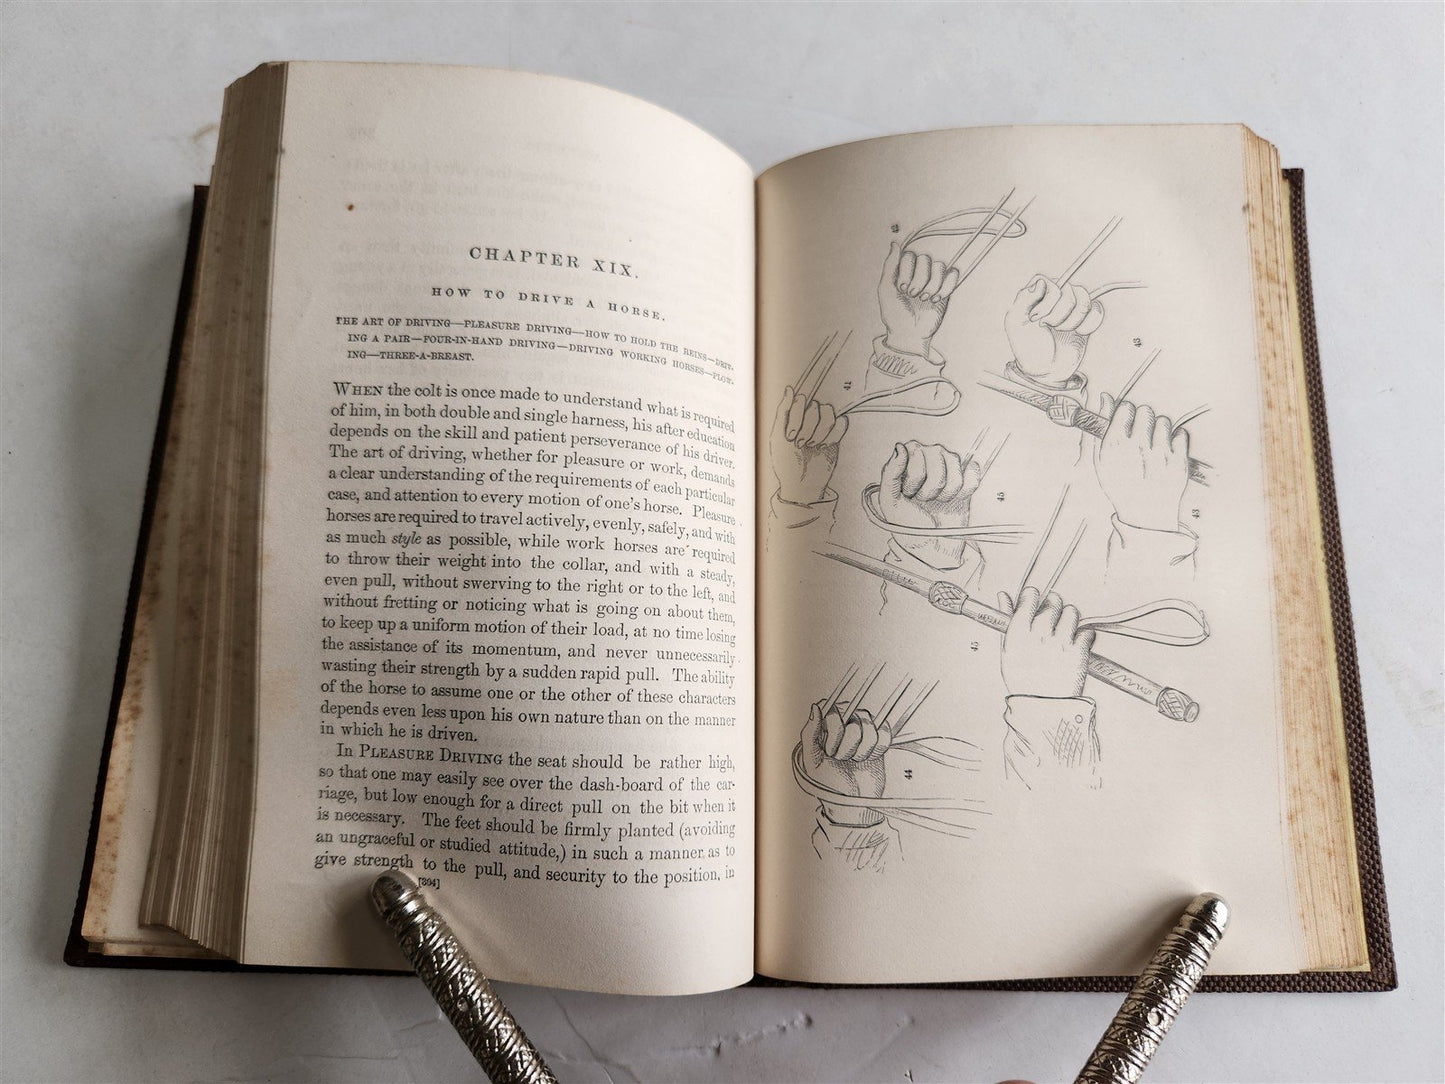 CHAPTER XIX.
HOW TO DRIVE A HORSE.
THE ART OF DRIVING—PLEASURE DRIVING—HOW TO HOLD THE REINS—DRIV-
ING A PAIR—FOUR-IN-HAND DRIVING—DRIVING WORKING HORSES—PLOW-
ING—THREE-A-BREAST.
WHEN the colt is once made to understand what is required
of him, in both double and single harness, his after education
depends on the skill and patient perseverance of his driver.
The art of driving, whether for pleasure or work, demands
a clear understanding of the requirements of each particular
case, and attention to every motion of one's horse. Pleasure
horses are required to travel actively, evenly, safely, and with
as much style as possible, while work horses are required
to throw their weight into the collar, and with a steady,
even pull, without swerving to the right or to the left, and
without fretting or noticing what is going on about them,
to keep up a uniform motion of their load, at no time losing
the assistance of its momentum, and never unnecessarily
wasting their strength by a sudden rapid pull. The ability
of the horse to assume one or the other of these characters
depends even less upon his own nature than on the manner
in which he is driven.
In PLEASURE DRIVING the seat should be rather high,
so that one may easily see over the dash-board of the car-
riage, but low enough for a direct pull on the bit when it
is necessary. The feet should be firmly planted (avoiding
an ungraceful or studied attitude,) in such a manner as to
give strength to the pull, and security to the position, in
[304]
43
41
45
43
45
44